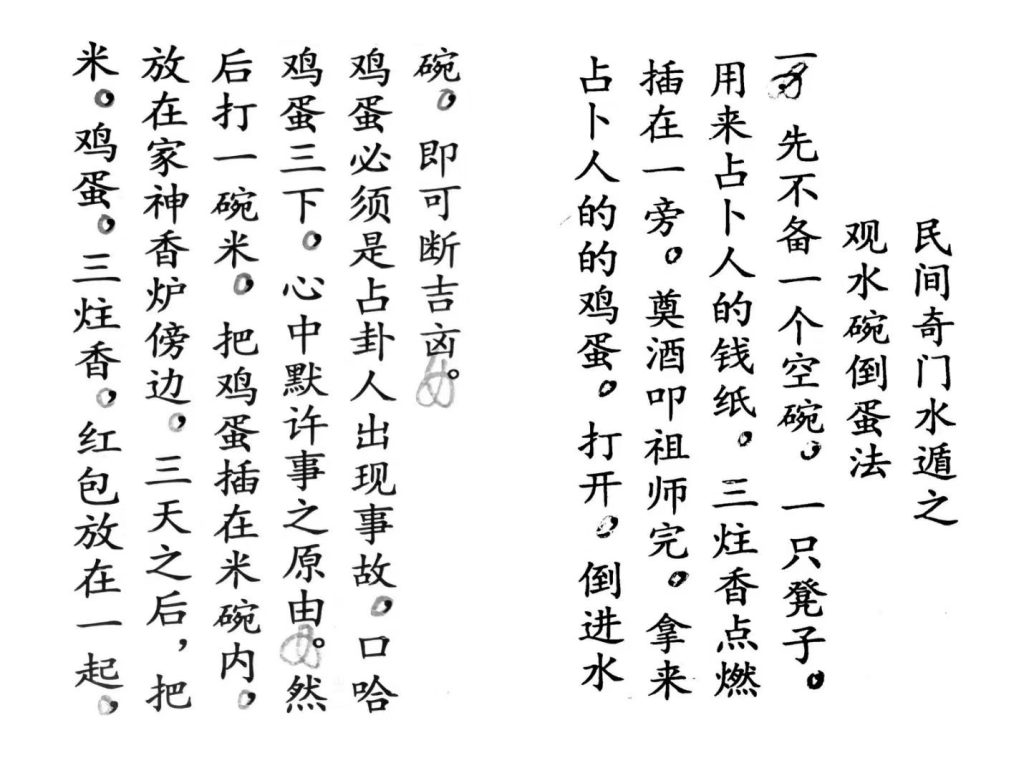 民间奇门水遁之
观水碗倒蛋法
一、先不备一个空碗。一只凳子。
用来占卜人的钱纸。三炷香点燃
插在一旁。奠酒叩祖师完。拿来
占卜人的的鸡蛋。打开，倒进水
碗，即可断吉㐫。
鸡蛋必须是占卦人出现事故，口哈
鸡蛋三下，心中默许事之原由。然
后打一碗米，把鸡蛋插在米碗内，
放在家神香炉傍边，三天之后，把
米，鸡蛋，三炷香，红包放在一起，